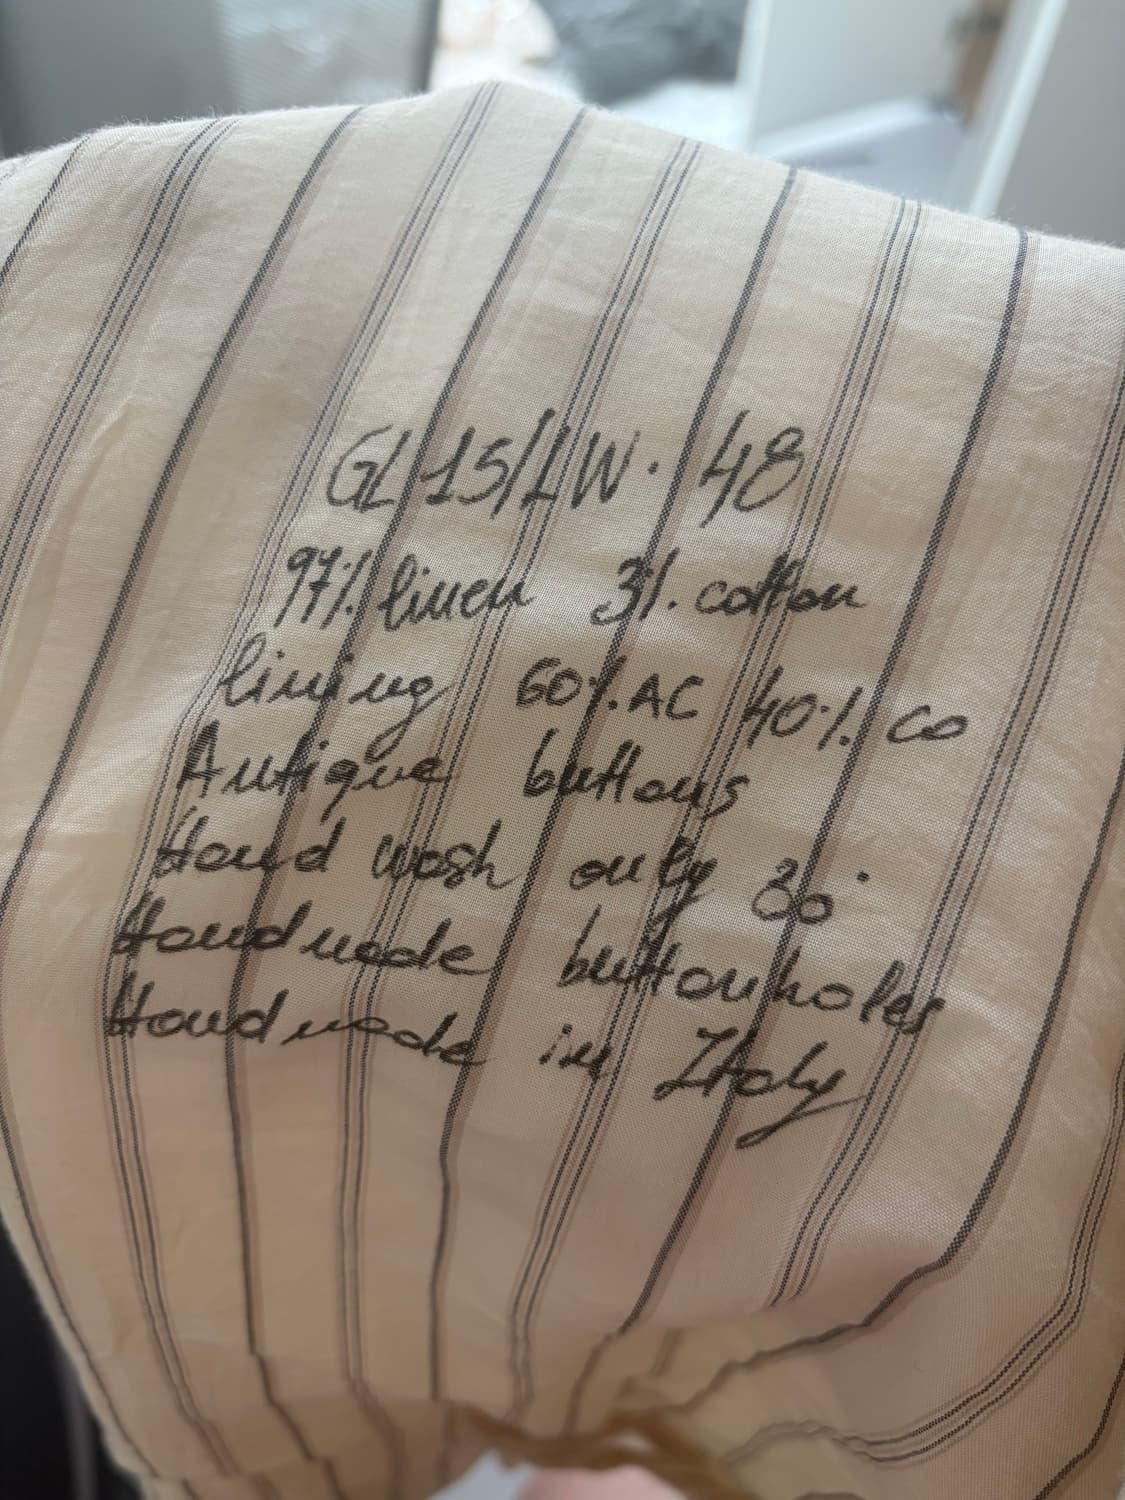 GL 15/LW. 48
97% linen 3% cotton
lining 60% AC 40% CO
Antique buttons
Hand wash only 30°
Handmade buttonholes
Handmade in Italy